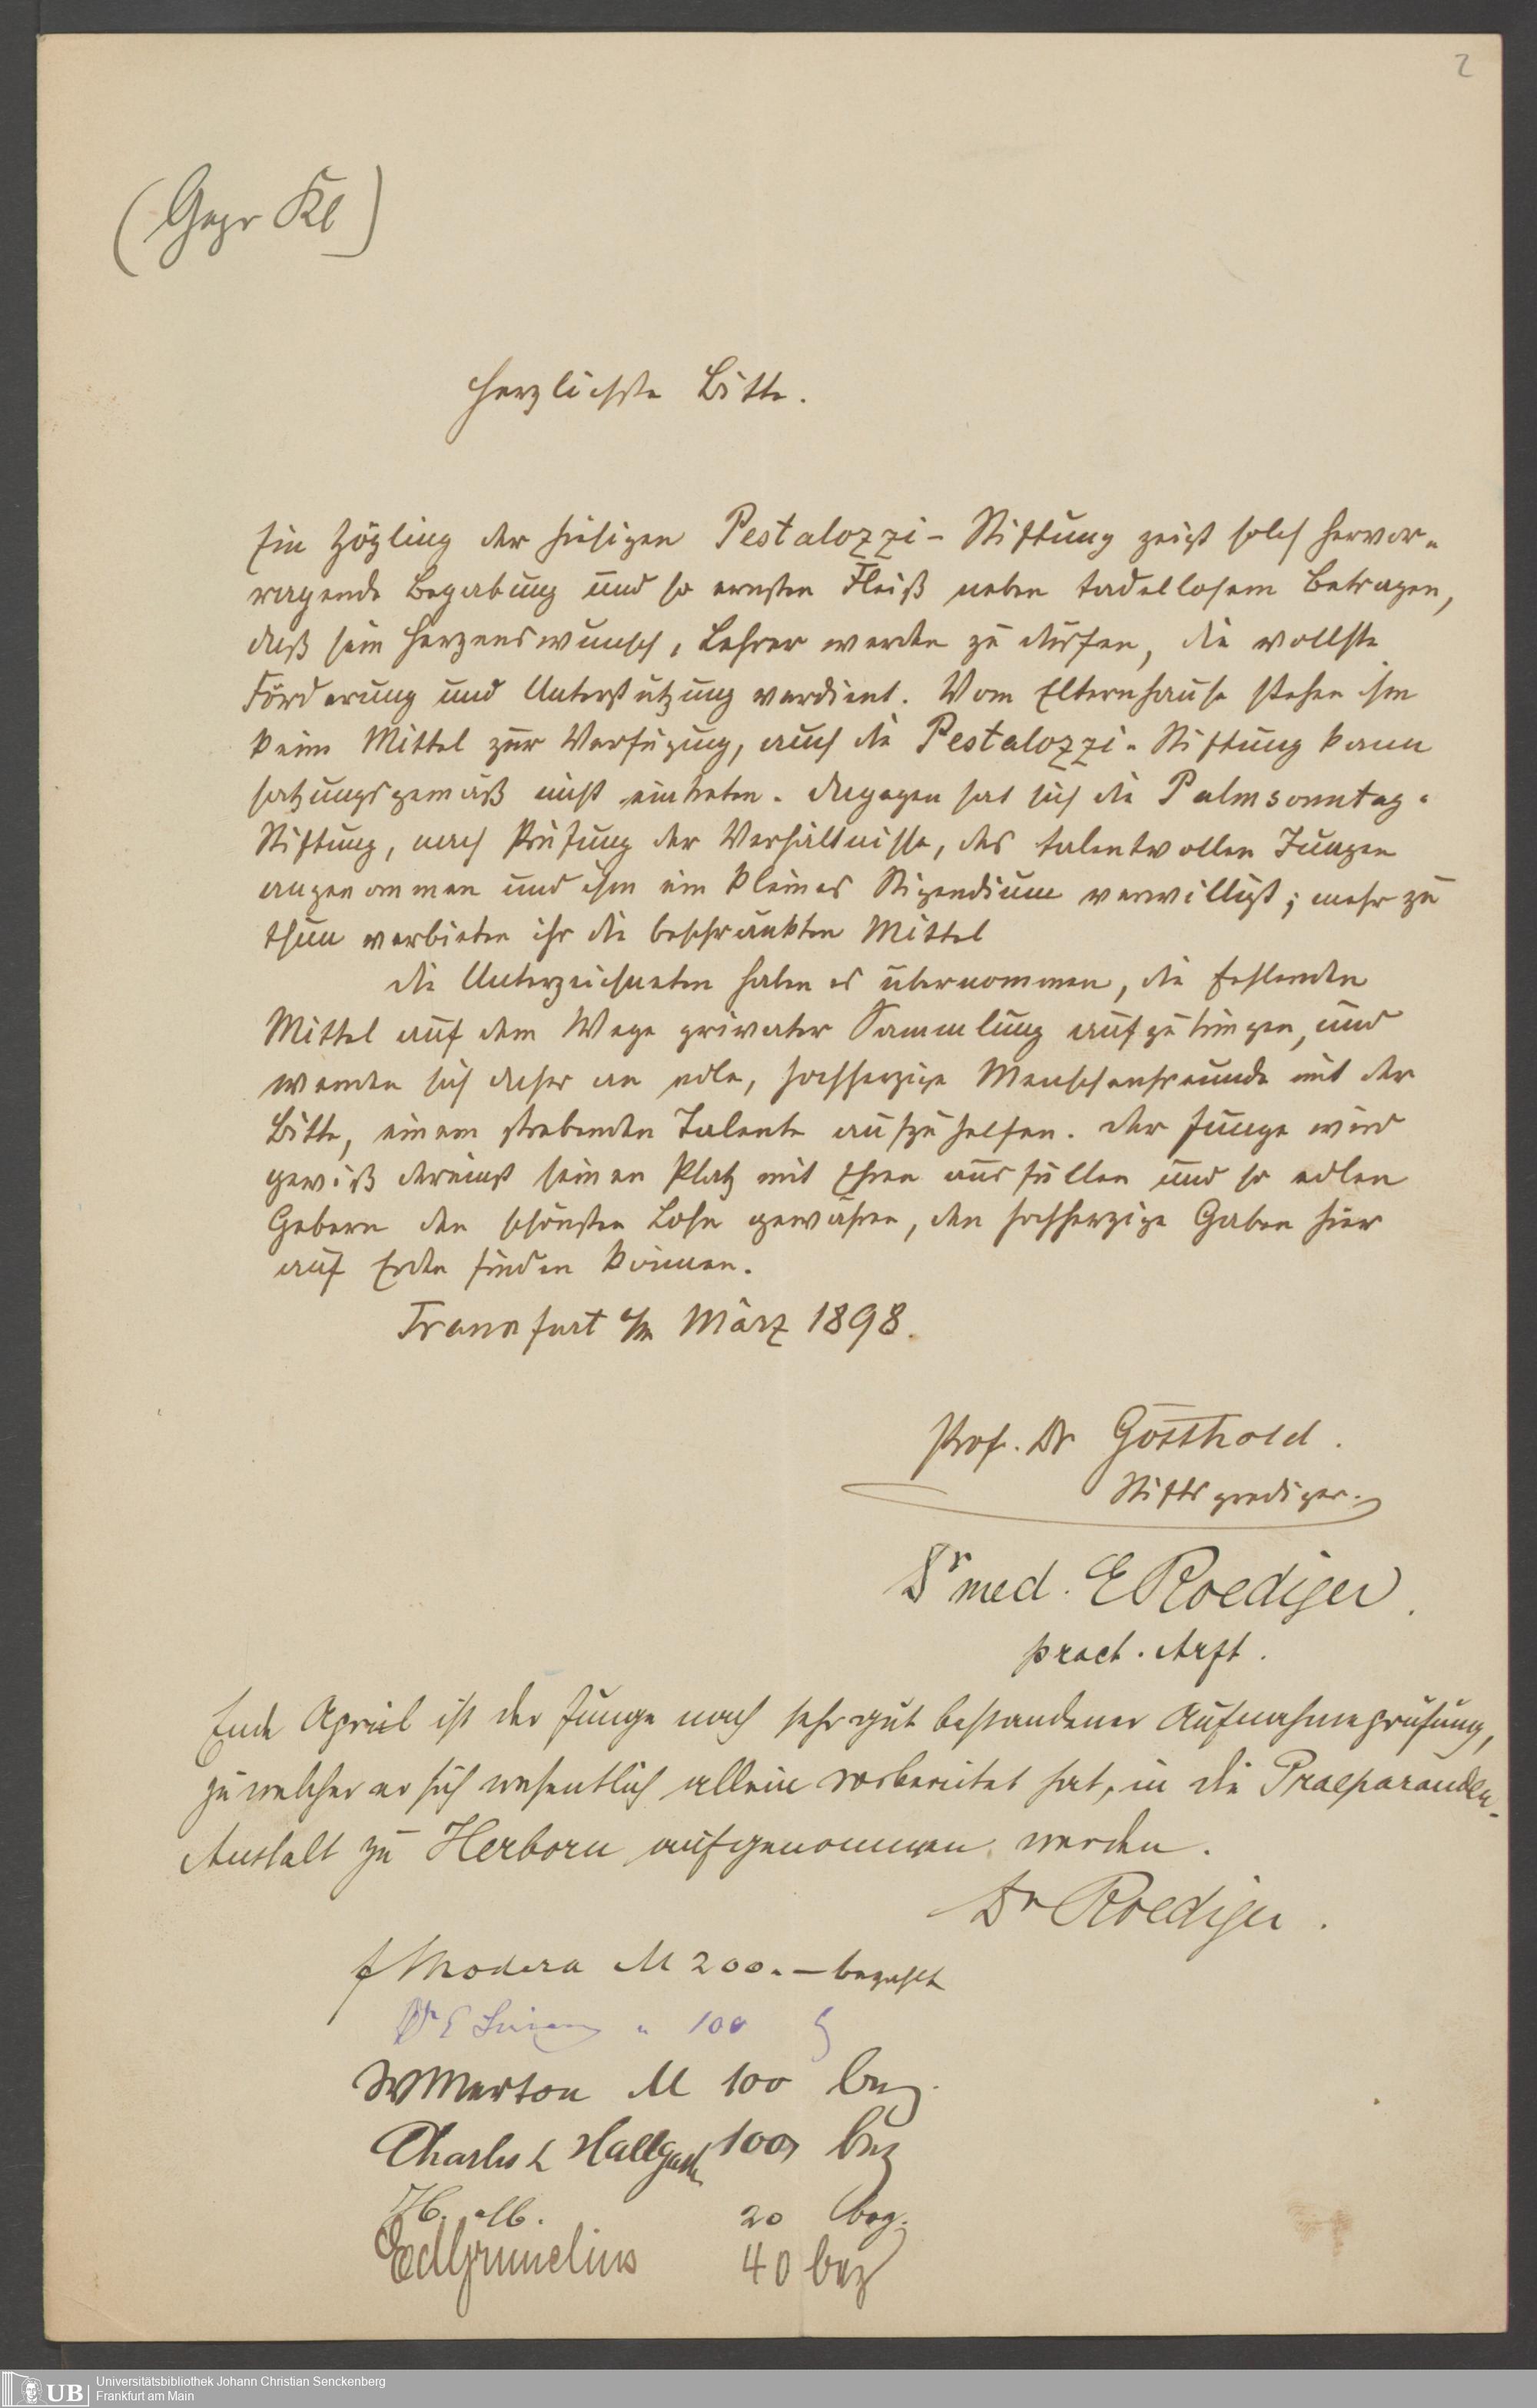 2
(Gepr Kl)
Herzlichste Bitte.
Ein Zögling der hiesigen Pestalozzi-Stiftung zeigt solch hervor-
ragende Begabung und so ernsten Fleiß neben tadellosem Betragen,
daß sein Herzenswunsch, Lehrer werden zu dürfen, die vollste
Förderung und Unterstützung verdient. Vom Elternhause stehen ihm
keine Mittel zur Verfügung, auch die Pestalozzi-Stiftung kann
satzungsgemäß nicht eintreten. Dagegen hat sich die Palmsonntag-
Stiftung, nach Prüfung der Verhältnisse, des talentvollen Jungen
angenommen und ihm ein kleines Stipendium verwilligt; mehr zu
thun verbieten ihr die beschränkten Mittel
Die Unterzeichneten haben es übernommen, die fehlenden
Mittel auf dem Wege privater Sammlung aufzubringen, und
wenden sich daher an edle, hochherzige Menschenfreunde mit der
Bitte, einem strebenden Talente aufzuhelfen. Der Junge wird
gewiß dereinst seinen Platz mit Ehren ausfüllen und so edlen
Gebern den schönsten Lohn gewähren, den hochherzige Gaben hier
auf Erden finden können.
Frankfurt a/M März 1898.
Prof. Dr Gotthold.
Stiftsprediger.
Dr med. E Roediger.
pract. Arzt.
Ende April ist der Junge nach sehr gut bestandener Aufnahmeprüfung,
zu welcher er sich wesentlich allein vorbereitet hat, in die Praeparanden-
Anstalt zu Herborn aufgenommen worden.
Dr Roediger.
f Modera M 200.— bezahlt
Dr E " 100
W Merton M 100 bez.
Charles L Hallgarten 100, bez
H. M. 20 bez.
Ed Grunelius 40 bez
UB Universitätsbibliothek Johann Christian Senckenberg
Frankfurt am Main